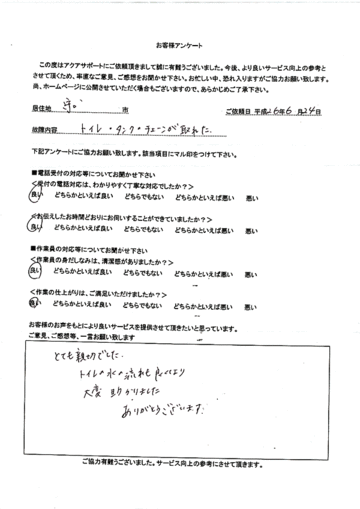 お客様アンケート
この度はアクアサポートにご依頼頂きまして誠に有難うございました。今後、より良いサービス向上の参考と
させて頂くため、率直なご意見、ご感想をお聞かせ下さい。お忙しい中、恐れ入りますがご協力お願い致します。
尚、ホームページに公開させていただく場合もございますので、あらかじめご了承下さい。
居住地 守口 市 ご依頼日 平成26年6月24日
故障内容 トイレ・タンク・チェーンが取れた.
下記アンケートにご協力お願い致します。該当項目にマル印をつけて下さい。
■電話受付の対応等についてお聞かせ下さい
<受付の電話対応は、わかりやすく丁寧な対応でしたか？>
良い どちらかといえば良い どちらでもない どちらかといえば悪い 悪い
<お伝えしたお時間どおりにお伺いすることができていましたか？>
良い どちらかといえば良い どちらでもない どちらかといえば悪い 悪い
■作業員の対応等についてお聞かせ下さい
<作業員の身だしなみは、清潔感がありましたか？>
良い どちらかといえば良い どちらでもない どちらかといえば悪い 悪い
<作業の仕上がりは、ご満足いただけましたか？>
良い どちらかといえば良い どちらでもない どちらかといえば悪い 悪い
お客様のお声をもとにより良いサービスを提供させて頂きたいと思っています。
ご意見、ご感想等、一言お願い致します
とても親切でした.
トイレの水の流れも良くなり
大変 助かりました
ありがとうございます.
ご協力有難うございました。サービス向上の参考にさせて頂きます。